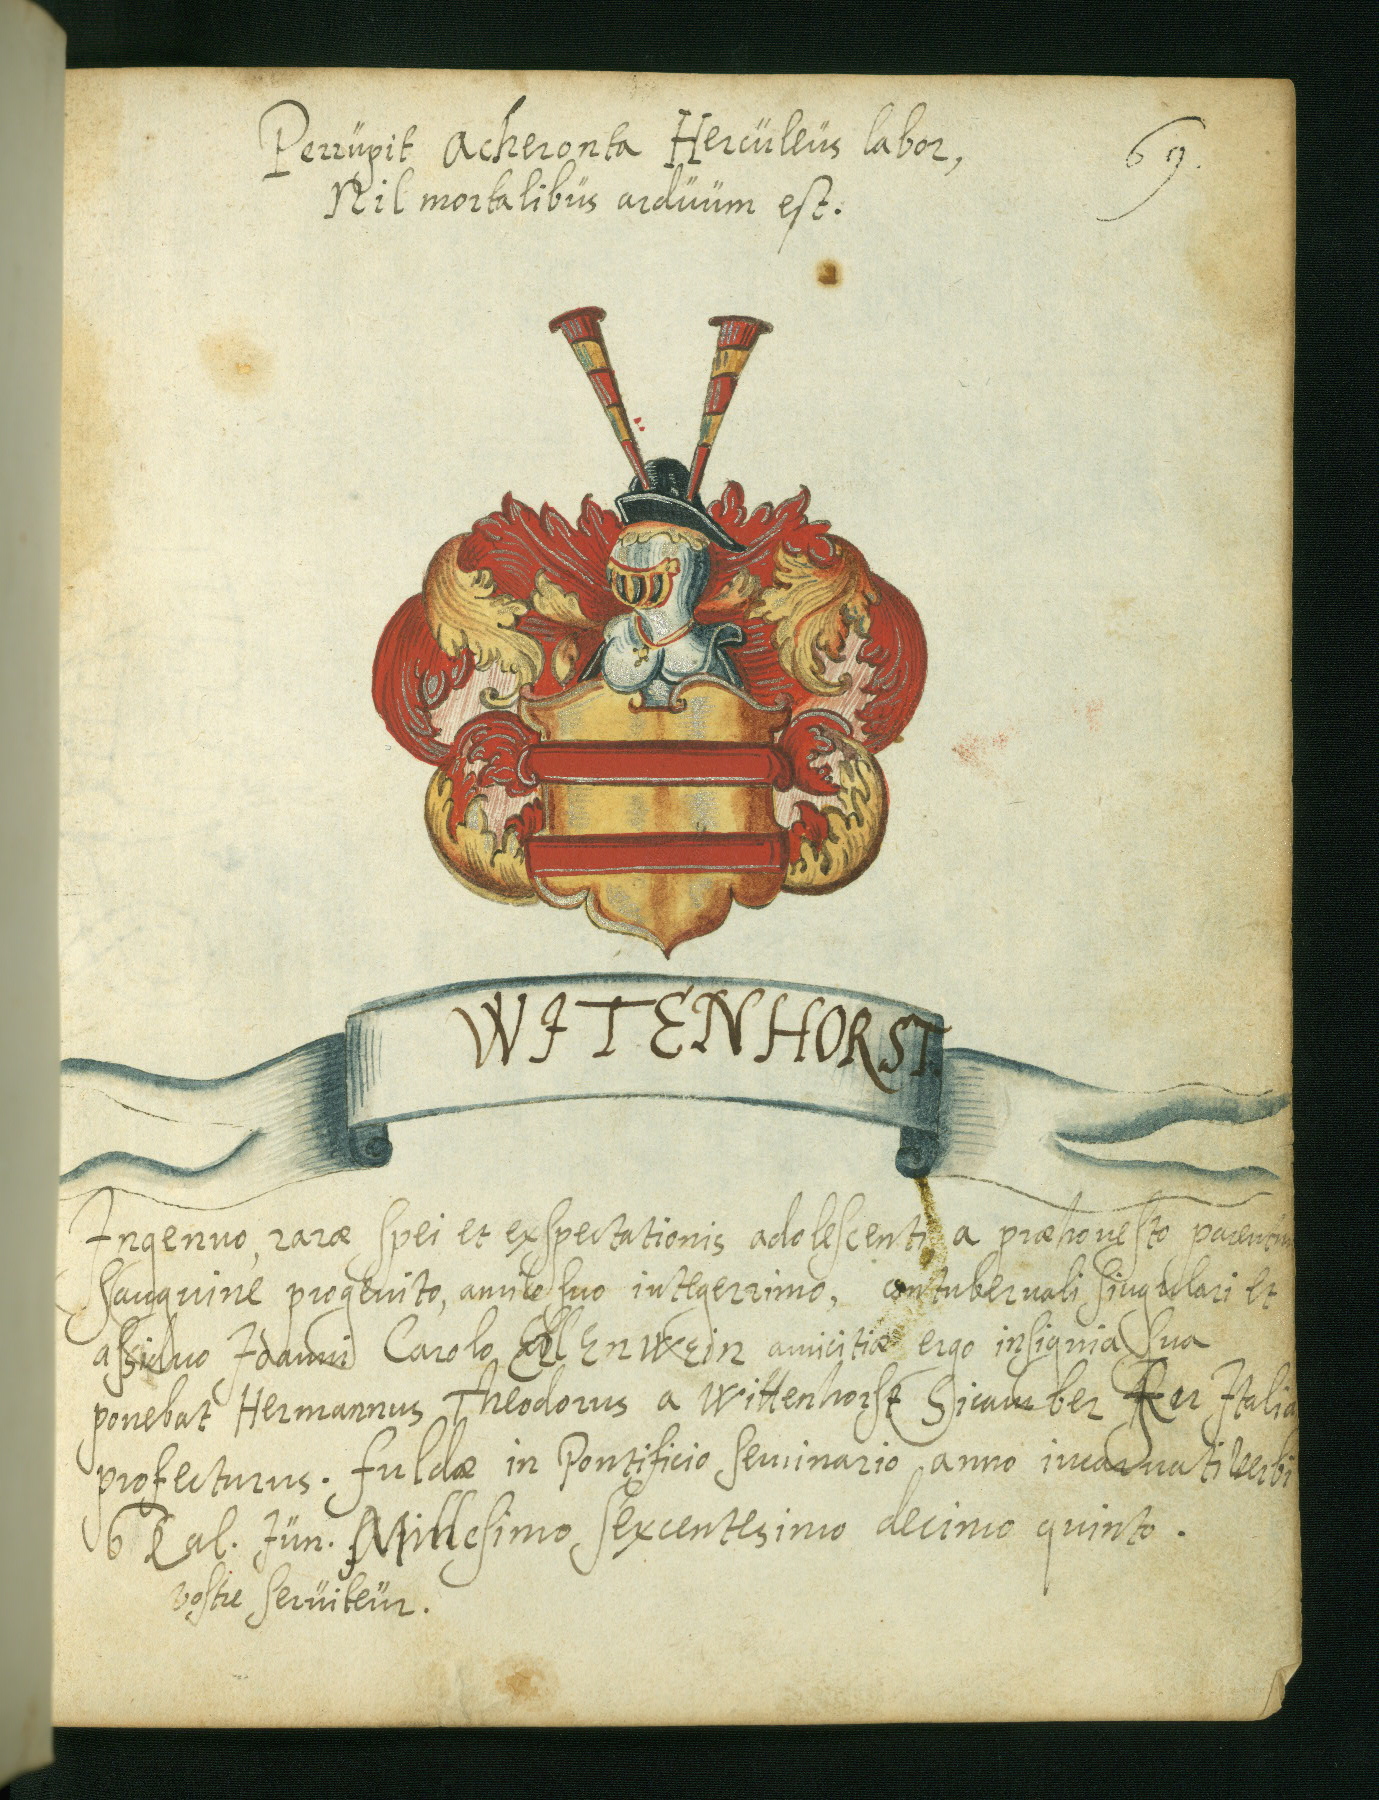 Perrüpit Acheronta Hercüleüs labor,
69.
Nil mortalibüs ardüüm est.
WITENHORST.
Ingenuo, raræ spei et exspectationis adolescenti a præhonesto parentum
sanguine progenito, amico suo integerrimo, contubernali singulari et
assiduo Joanni Carolo Ellenwein amicitiæ ergo insignia sua
ponebat Hermannus Theodorus a Wittenhorst Sicamber in Italia
profecturus. Fuldæ in Pontificio seminario anno incarnati verbi
6 Cal. Jün. Millesimo sexcentesimo decimo quinto.
vostre serüiteür.